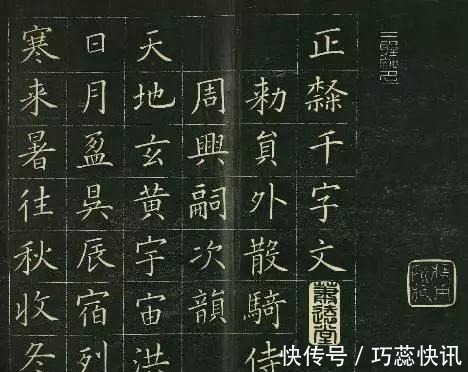 正隸千字文
勑貟外散騎侍
周興嗣次韻
天地玄黃宇宙洪
日月盈昃辰宿列
寒来暑往秋收冬
快传号 / 巧蕊快讯